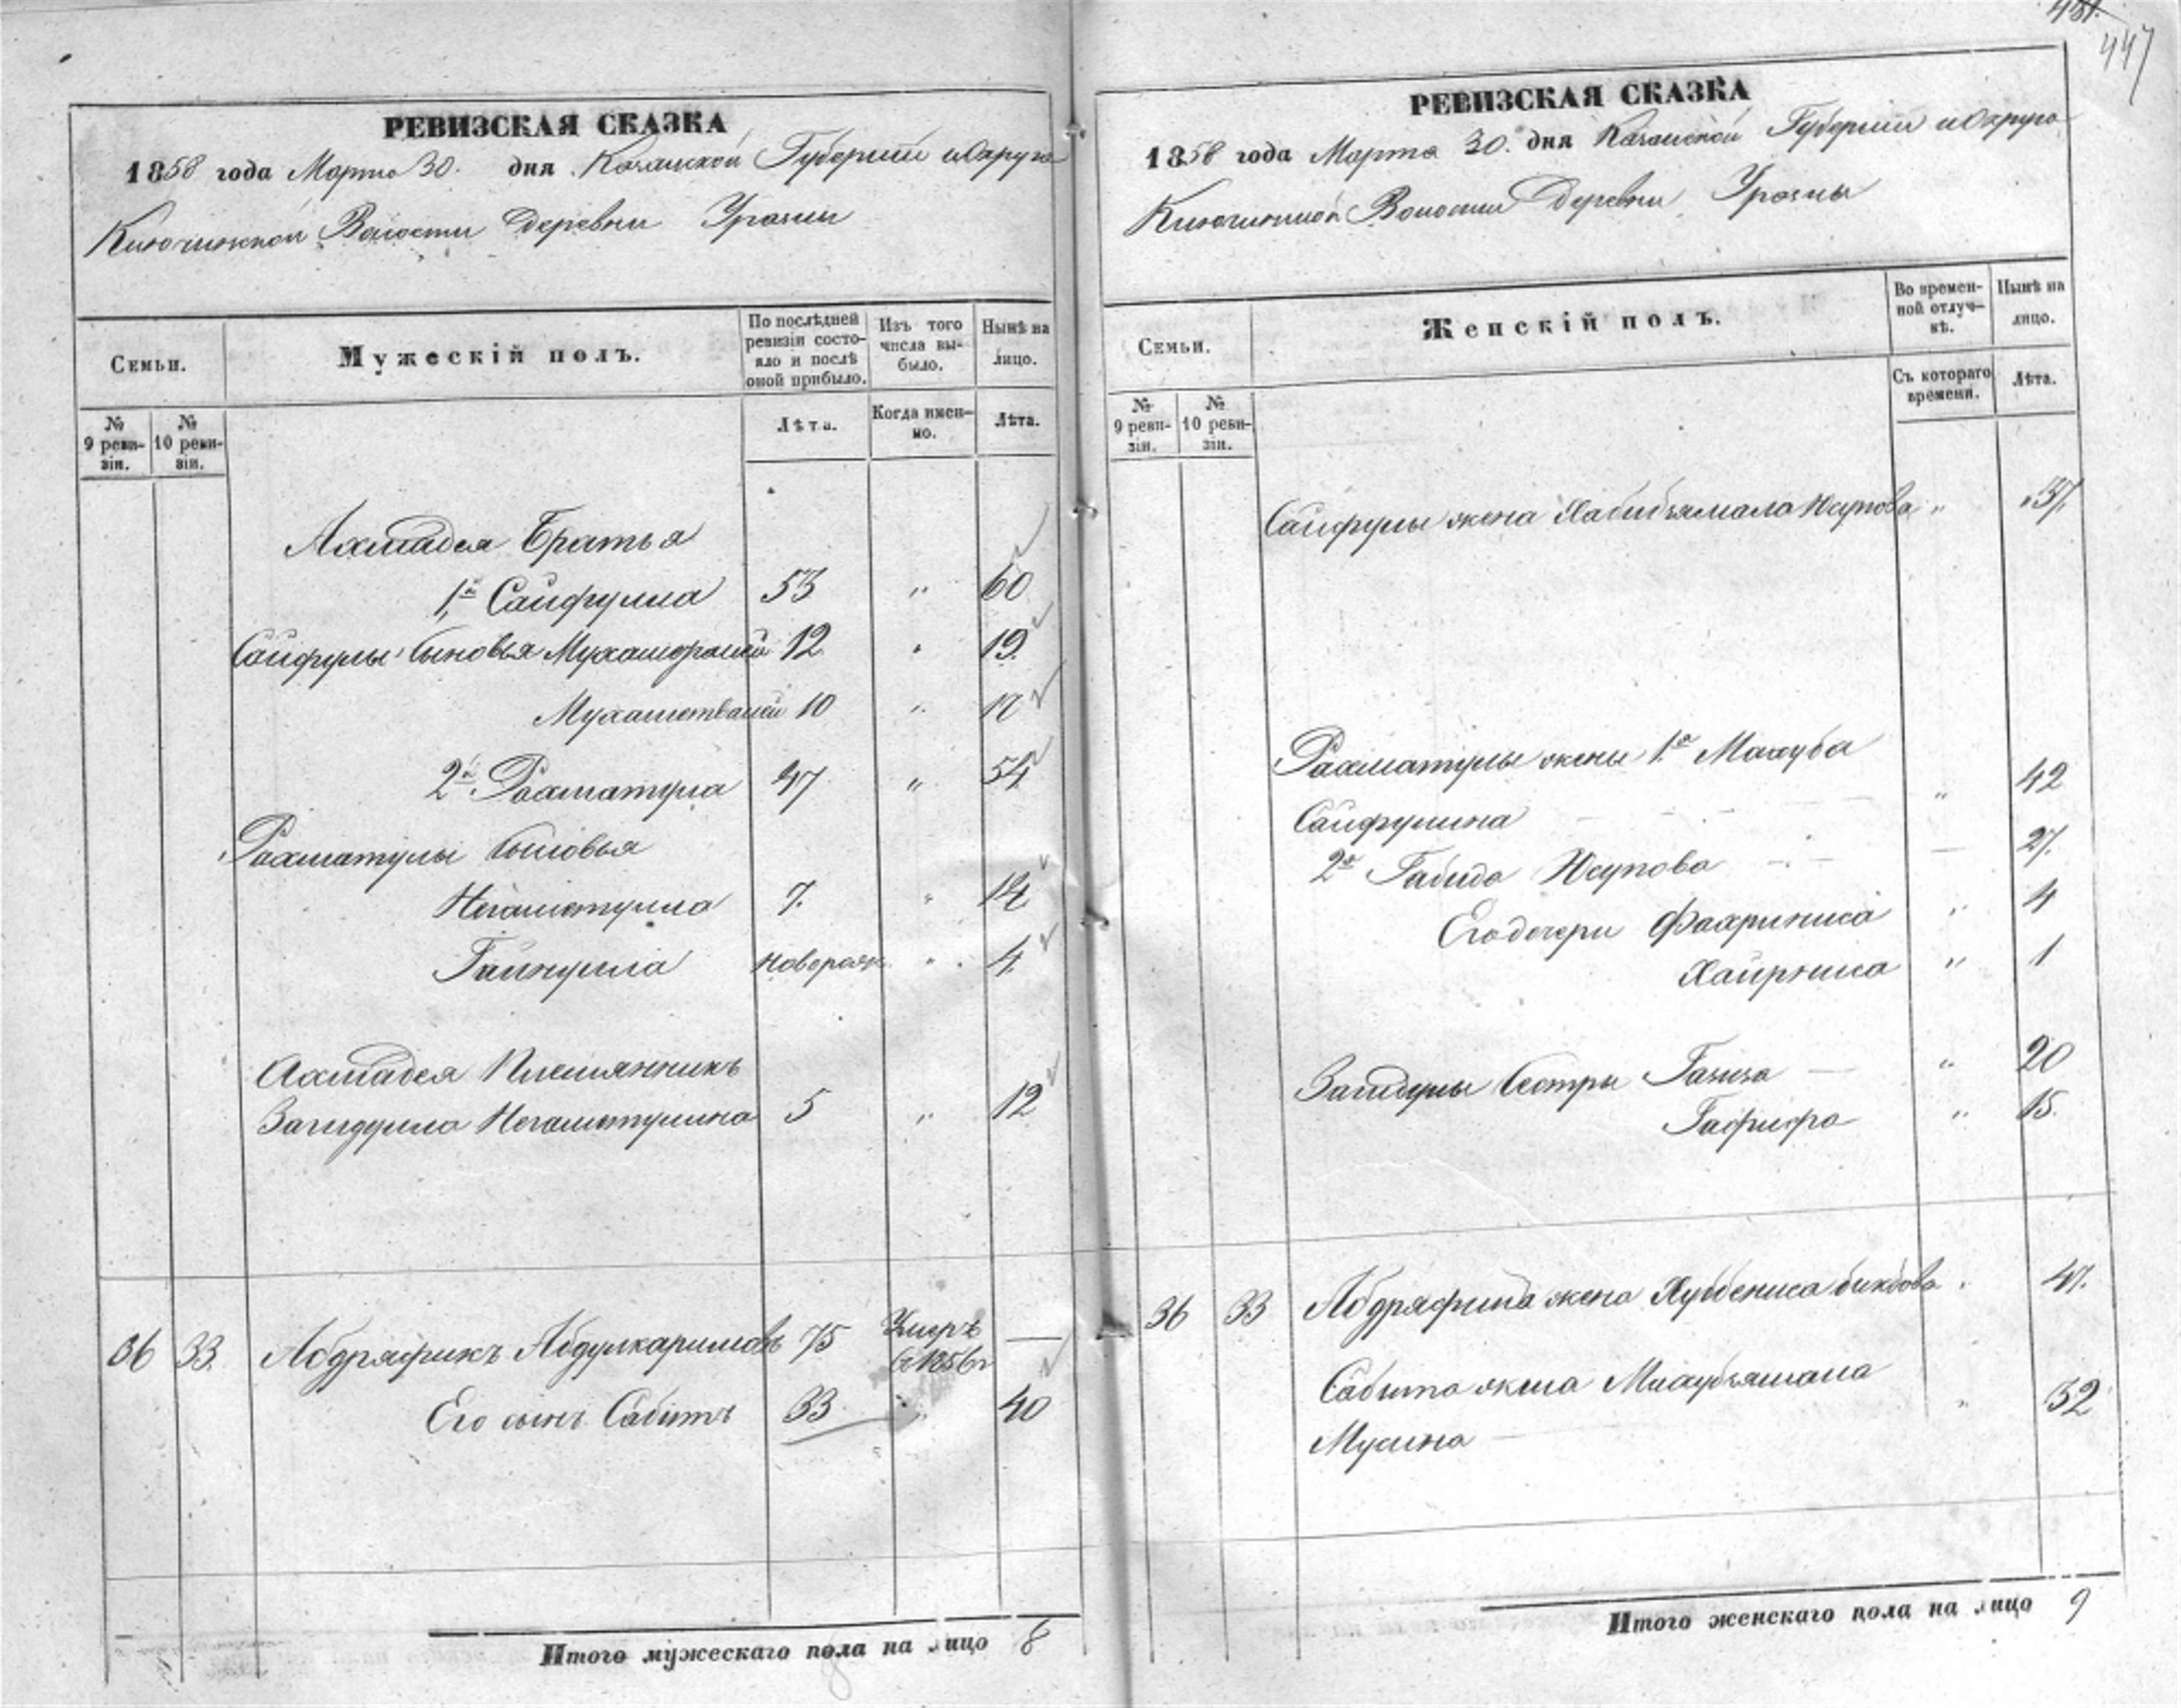 447
РЕВИЗСКАЯ СКАЗКА
1858 года Марта 30. дня Казанской Губернии и Округа
Волости Деревни
Семьи.
Мужескій полъ.
По послѣдней ревизіи состояло и послѣ оной прибыло.
Изъ того числа выбыло.
Нынѣ на лицо.
№ 9 ревизіи.
№ 10 ревизіи.
Лѣта.
Когда именно.
Лѣта.
Ахмадея Братья
1й Сайфулла 53 " 60
Сайфулы Сыновья 12 " 19
Мухаметвалей 10 " 17
2й Рахматулла 47 " 54
Рахматулы Сыновья
Негаметулла 7. " 14
Гайнулла новорож. " 4
Ахмадея Племянникъ
Загидулла Негаметулина 5 " 12
36 33. Абдряфикъ Абдулкаримовъ 75 Умеръ в 1856 г —
Его сынъ Сабитъ 33 " 40
Итого мужескаго пола на лицо 8
РЕВИЗСКАЯ СКАЗКА
1858 года Марта 30. дня Казанской Губернии и Округа
Волости Деревни
Семьи.
Женскій полъ.
Во временной отлучкѣ.
Нынѣ на лицо.
№ 9 ревизіи.
№ 10 ревизіи.
Съ котораго времени.
Лѣта.
Сайфулы жена Хабибъямала Юсупова " 37
Рахматулы жены 1я Махуба
Сайфулина " 42
2я Габида Юсупова — 27.
Его дочери Фахриниса " 4
Хайрниса " 1
Загидулы Сестры " 20
Гафифа " 15.
36 33 Абдряфика жена 47.
Сабита жена
Мусина " 32
Итого женскаго пола на лицо 9